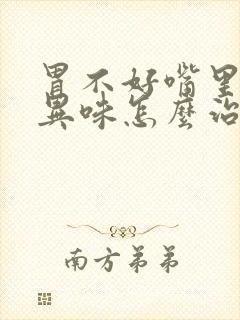 胃不好嘴里
異味怎麼治
南方弟弟